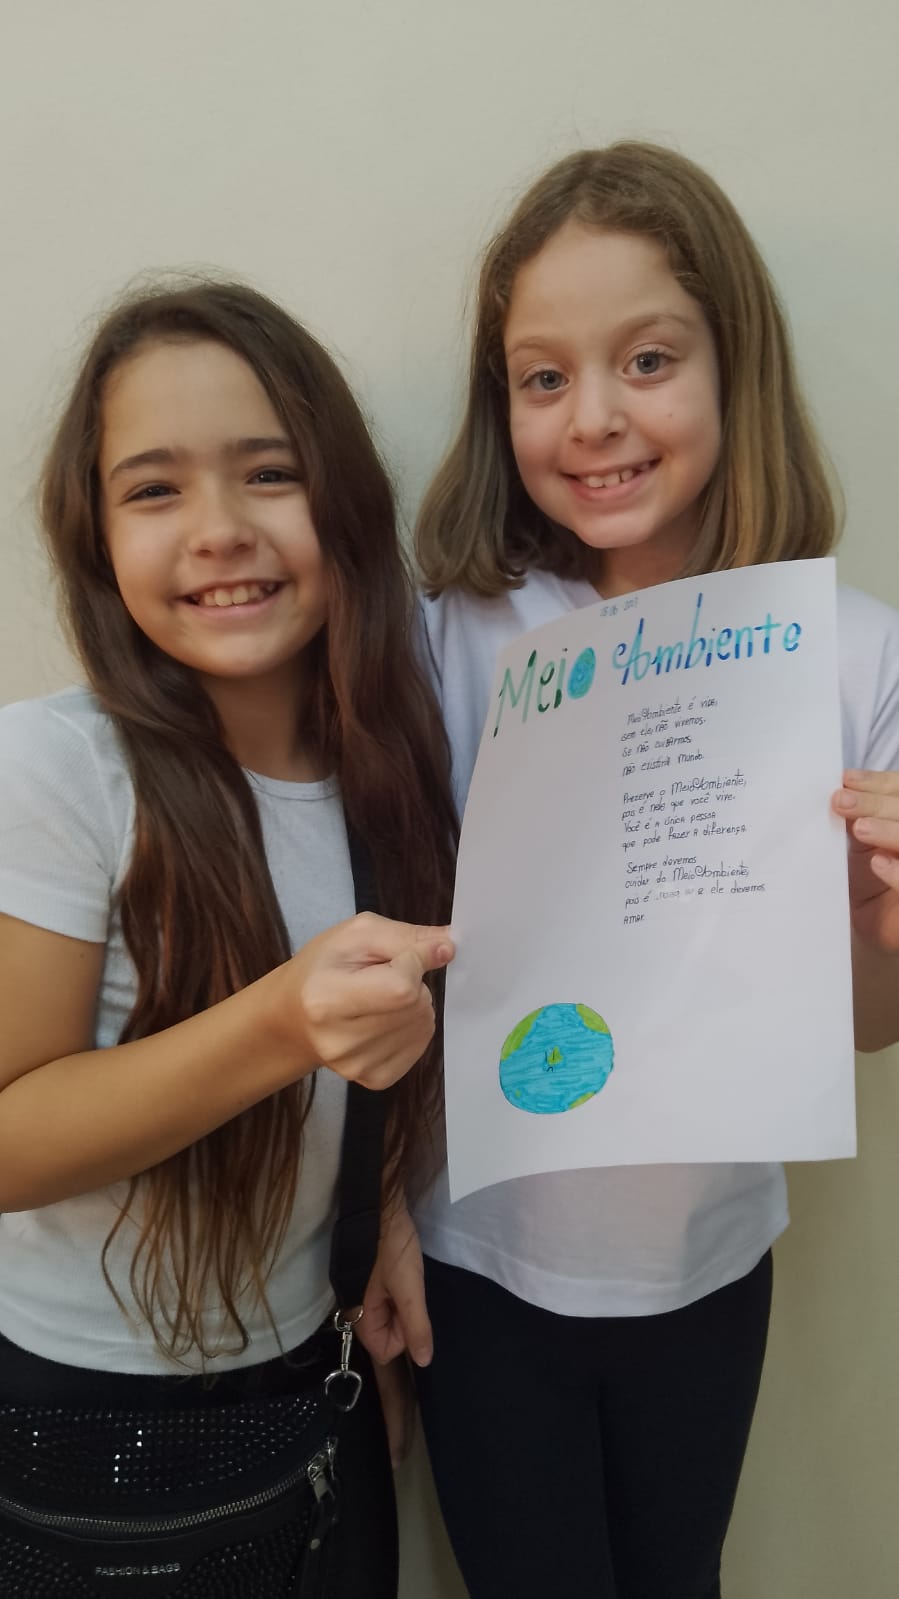 Meio Ambiente
Meio Ambiente é vida,
sem ele, não vivemos.
Se não cuidarmos
não existirá mundo.
Preserve o Meio Ambiente,
pois é nele que você vive.
Você é a única pessoa
que pode fazer a diferença.
Sempre devemos
cuidar do Meio Ambiente,
pois é e a ele devemos
amar.
FASHION & BAGS